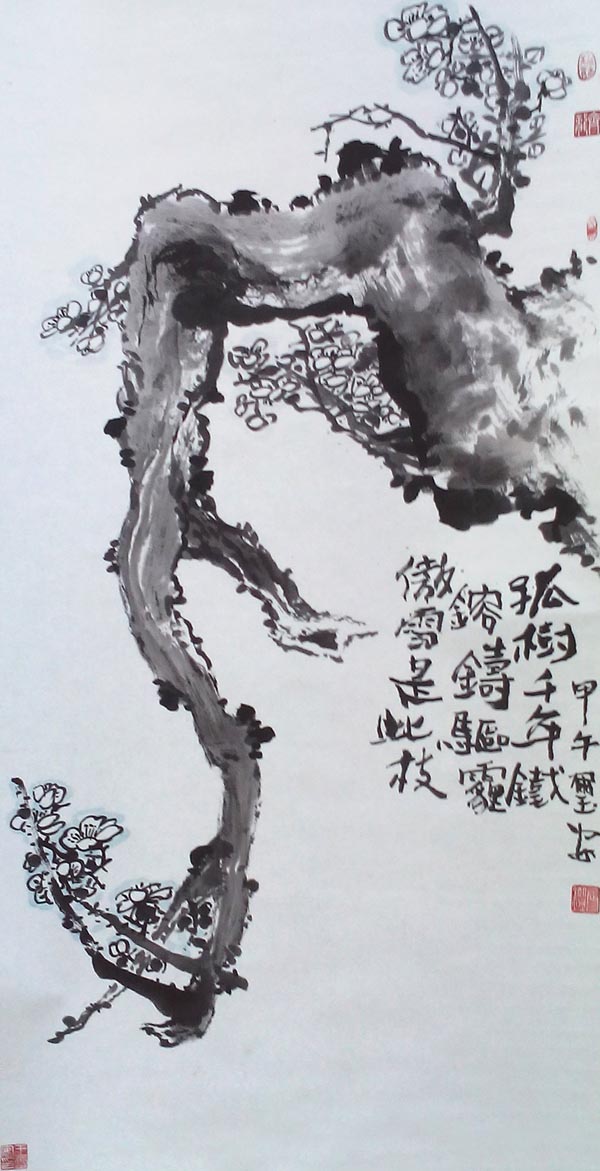 孤樹千年鐵
鎔鑄驅霾
傲雪是此枝
甲午璽